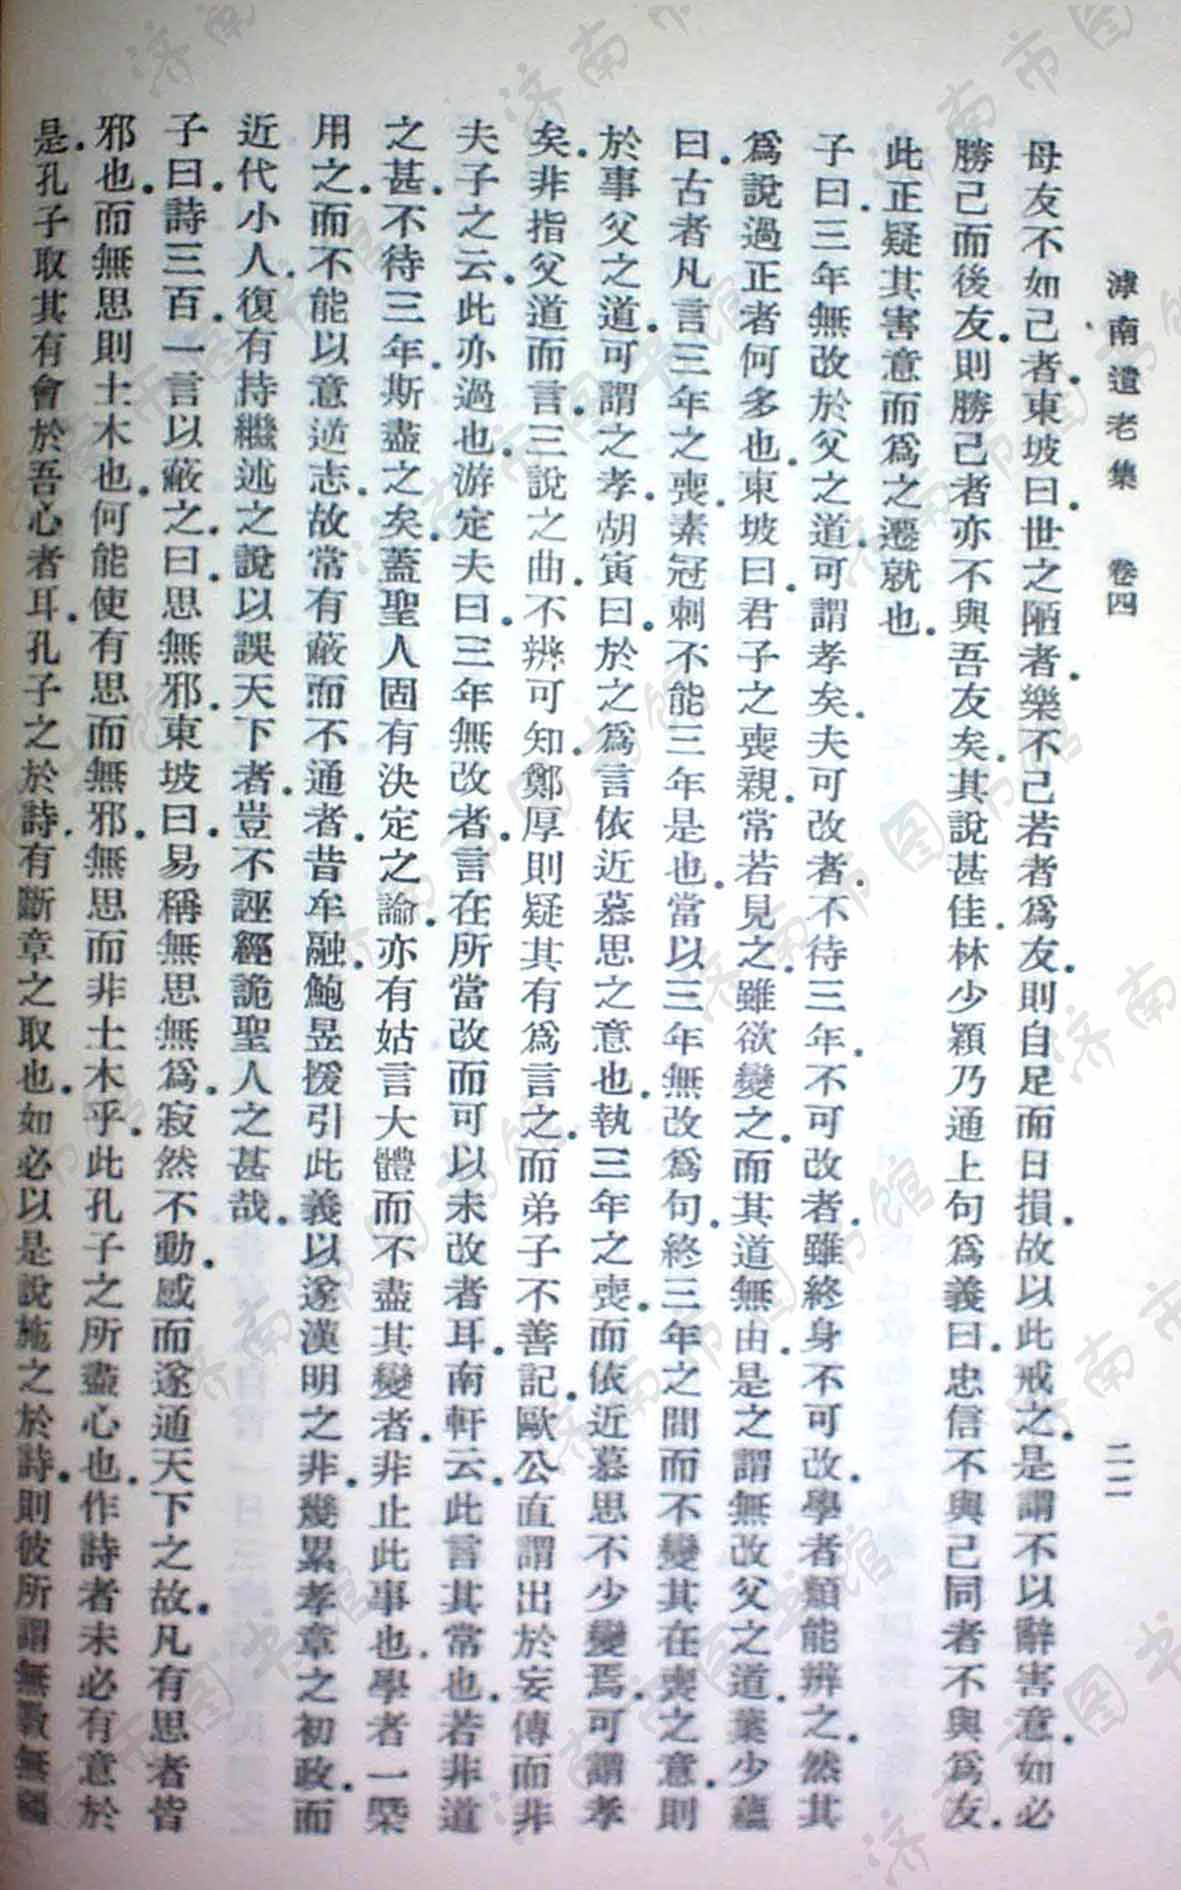 滹南遺老集　卷四　二二
母友不如己者。東坡曰。世之陋者。樂不己若者爲友。則自足而日損。故以此戒之。是謂不以辭害意。如必
勝己而後友。則勝己者亦不與吾友矣。其說甚佳。林少穎乃通上句爲義曰。忠信不與己同者不與爲友。
此正疑其害意而爲之遷就也。
子曰。三年無改於父之道。可謂孝矣。夫可改者。不待三年。不可改者。雖終身不可改。學者類能辨之。然其
爲說過正者何多也。東坡曰。君子之喪親。常若見之。雖欲變之。而其道無由。是之謂無改父之道。葉少蘊
曰。古者凡言三年之喪。素冠刺不能三年是也。當以三年無改爲句。終三年之間而不變其在喪之意。則
於事父之道。可謂之孝。胡寅曰。於之爲言依近慕思之意也。執三年之喪。而依近慕思不少變焉。可謂孝
矣。非指父道而言。三說之曲。不辨可知。鄭厚則疑其有爲言之。而弟子不善記。歐公直謂出於妄傳而非
夫子之云。此亦過也。游定夫曰。三年無改者。言在所當改而可以未改者耳。南軒云。此言其常也。若非道
之甚。不待三年。斯盡之矣。蓋聖人固有決定之論。亦有姑言大體而不盡其變者。非止此事也。學者一槩
用之。而不能以意逆志。故常有蔽而不通者。昔牟融。鮑昱援引此義。以遂漢明之非。幾累孝章之初政。而
近代小人。復有持繼述之說以誤天下者。豈不誣經詭聖人之甚哉。
子曰。詩三百。一言以蔽之。曰思無邪。東坡曰。易稱無思無爲。寂然不動。感而遂通天下之故。凡有思者皆
邪也。而無思則土木也。何能使有思而無邪。無思而非土木乎。此孔子之所盡心也。作詩者未必有意於
是。孔子取其有會於吾心者耳。孔子之於詩。有斷章之取也。如必以是說施之於詩。則彼所謂無斁無疆